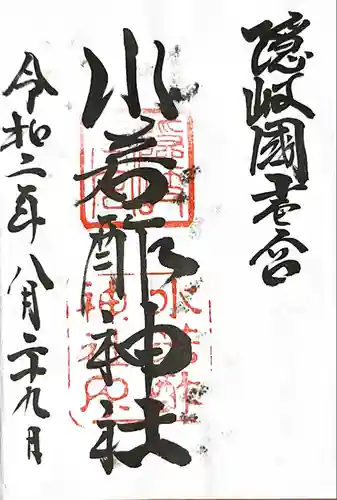 隠岐國壱宮
水若酢神社
令和二年八月二十九日
水若酢
神社印